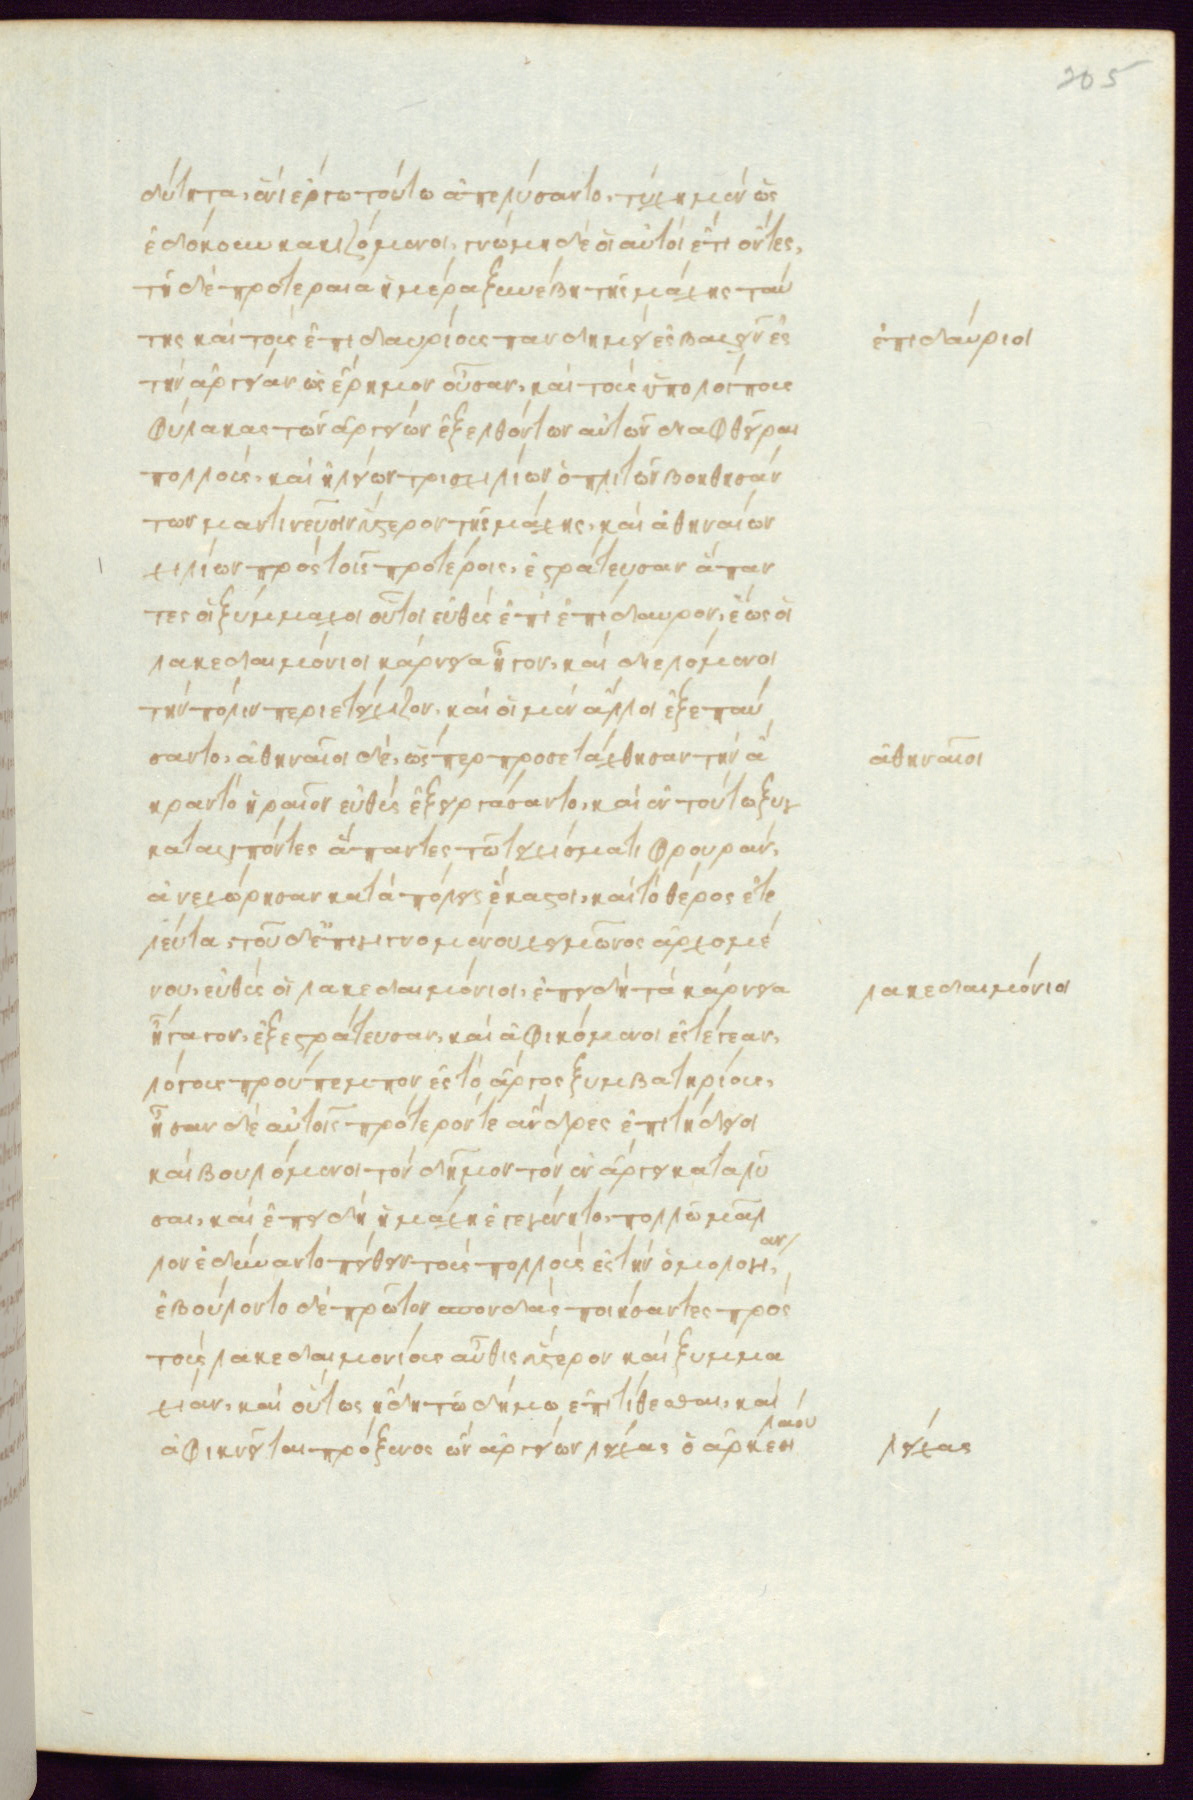 205
δύτητα, ἑνὶ ἔργω τούτω ἀπελύσαντο, τύχη μὲν ὡς
ἐδόκουν κακιζόμενοι, γνώμη δὲ οἱ αὐτοὶ ἔτι ὄντες,
τῆ δὲ προτεραία ἡμέρα ξυνέβη τῆς μάχης ταύ
της καὶ τοὺς ἐπιδαυρίους πανδημεὶ ἐσβαλεῖν ἐς
ἐπιδαύριοι
τὴν ἀργείαν ὡς ἔρημον οὖσαν, καὶ τοὺς ὑπολοίπους
φύλακας τῶν ἀργείων ἐξελθόντων αὐτῶν διαφθεῖραι
πολλούς, καὶ ἠλείων τρισχιλίων ὁπλιτῶν βοηθησάν
των μαντινεῦσιν ὕστερον τῆς μάχης, καὶ ἀθηναίων
χιλίων πρὸς τοῖς προτέροις, ἐστράτευσαν ἅπαν
τες οἱ ξύμμαχοι οὗτοι εὐθὺς ἐπὶ ἐπίδαυρον, ἕως οἱ
λακεδαιμόνιοι κάρνεια ἦγον, καὶ διελόμενοι
τὴν πόλιν περιετείχιζον, καὶ οἱ μὲν ἄλλοι ἐξεπαύ
σαντο, ἀθηναῖοι δέ, ὥσπερ προσετάχθησαν τὴν ἄ
ἀθηναῖοι
κραν τὸ ἡραῖον εὐθὺς ἐξειργάσαντο, καὶ ἐν τούτω ξυγ
καταλιπόντες ἅπαντες τῶ τειχίσματι φρουράν,
ἀνεχώρησαν κατὰ πόλεις ἕκαστοι, καὶ τὸ θέρος ἐτε
λεύτα, τοῦ δ' ἐπιγιγνομένου χειμῶνος ἀρχομέ
νου, εὐθὺς οἱ λακεδαιμόνιοι, ἐπειδὴ τὰ κάρνεια
λακεδαιμόνιοι
ἤγαγον, ἐξεστράτευσαν, καὶ ἀφικόμενοι ἐς τέγεαν,
λόγους προύπεμπον ἐς τὸ ἄργος ξυμβατηρίους,
ἦσαν δὲ αὐτοῖς πρότερόν τε ἄνδρες ἐπιτήδειοι
καὶ βουλόμενοι τὸν δῆμον τὸν ἐν ἄργει καταλῦ
σαι, καὶ ἐπειδὴ ἡ μάχη ἐγεγένητο, πολλῶ μᾶλ
λον ἐδύναντο πείθειν τοὺς πολλοὺς ἐς τὴν ὁμολογίαν,
ἐβούλοντο δὲ πρῶτον σπονδὰς ποιήσαντες πρὸς
τοὺς λακεδαιμονίους αὖθις ὕστερον καὶ ξυμμα
χίαν, καὶ οὕτως ἤδη τῶ δήμω ἐπιτίθεσθαι, καὶ
ἀφικνεῖται πρόξενος ὢν ἀργείων λείχας ὁ ἀρκεσιλάου
λείχας